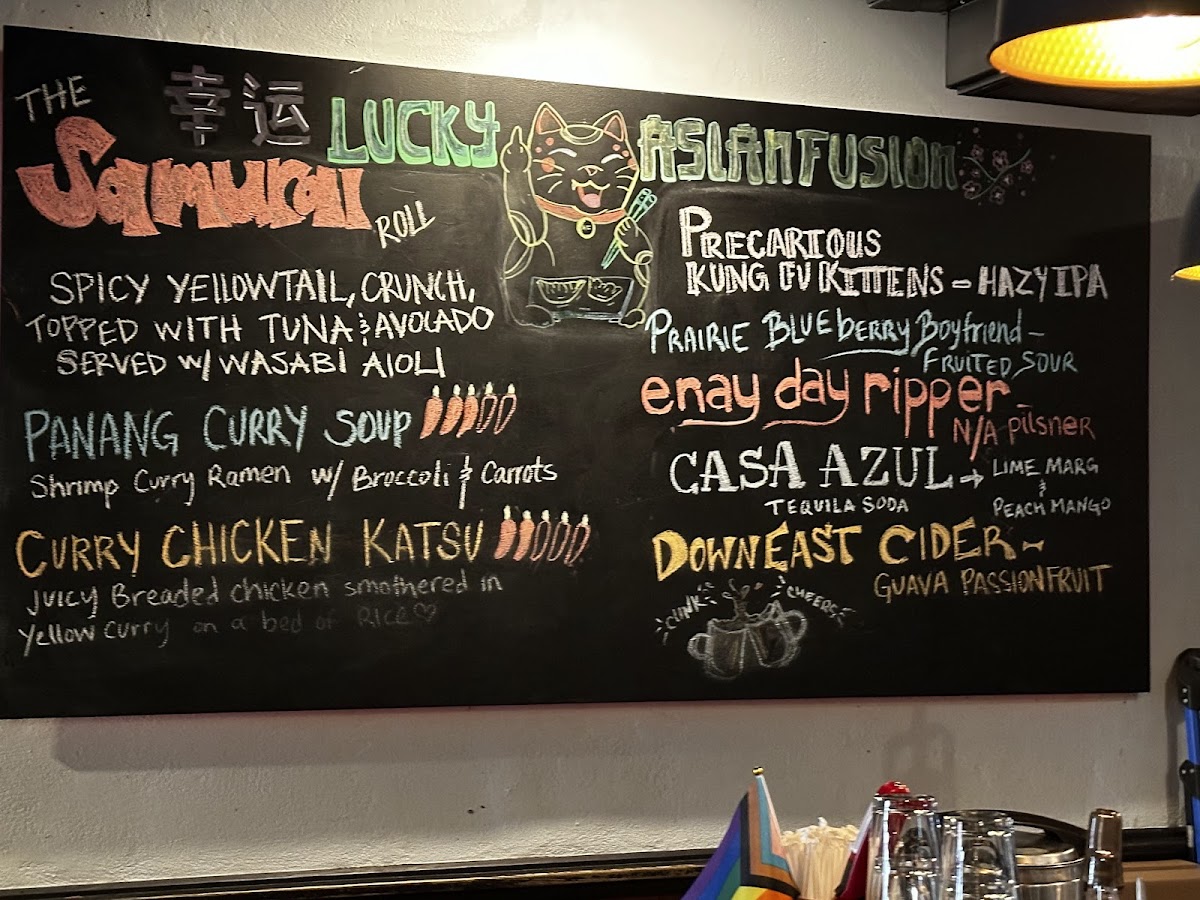 幸运 LUCKY ASIAN FUSION
THE
Samurai
ROLL
SPICY YELLOWTAIL, CRUNCH,
TOPPED WITH TUNA & AVOCADO
SERVED W/ WASABI AIOLI
PANANG CURRY SOUP
Shrimp Curry Ramen w/ Broccoli & Carrots
CURRY CHICKEN KATSU
JUICY Breaded chicken smothered in
Yellow curry on a bed of RICE♡
PRECARIOUS
KUNG FU KITTENS - HAZY IPA
PRAIRIE BLUEberry Boyfriend -
FRUITED SOUR
enay day ripper -
N/A pilsner
CASA AZUL → LIME MARG
&
TEQUILA SODA PEACH MANGO
DOWNEAST CIDER -
GUAVA PASSIONFRUIT
CLINK CHEERS